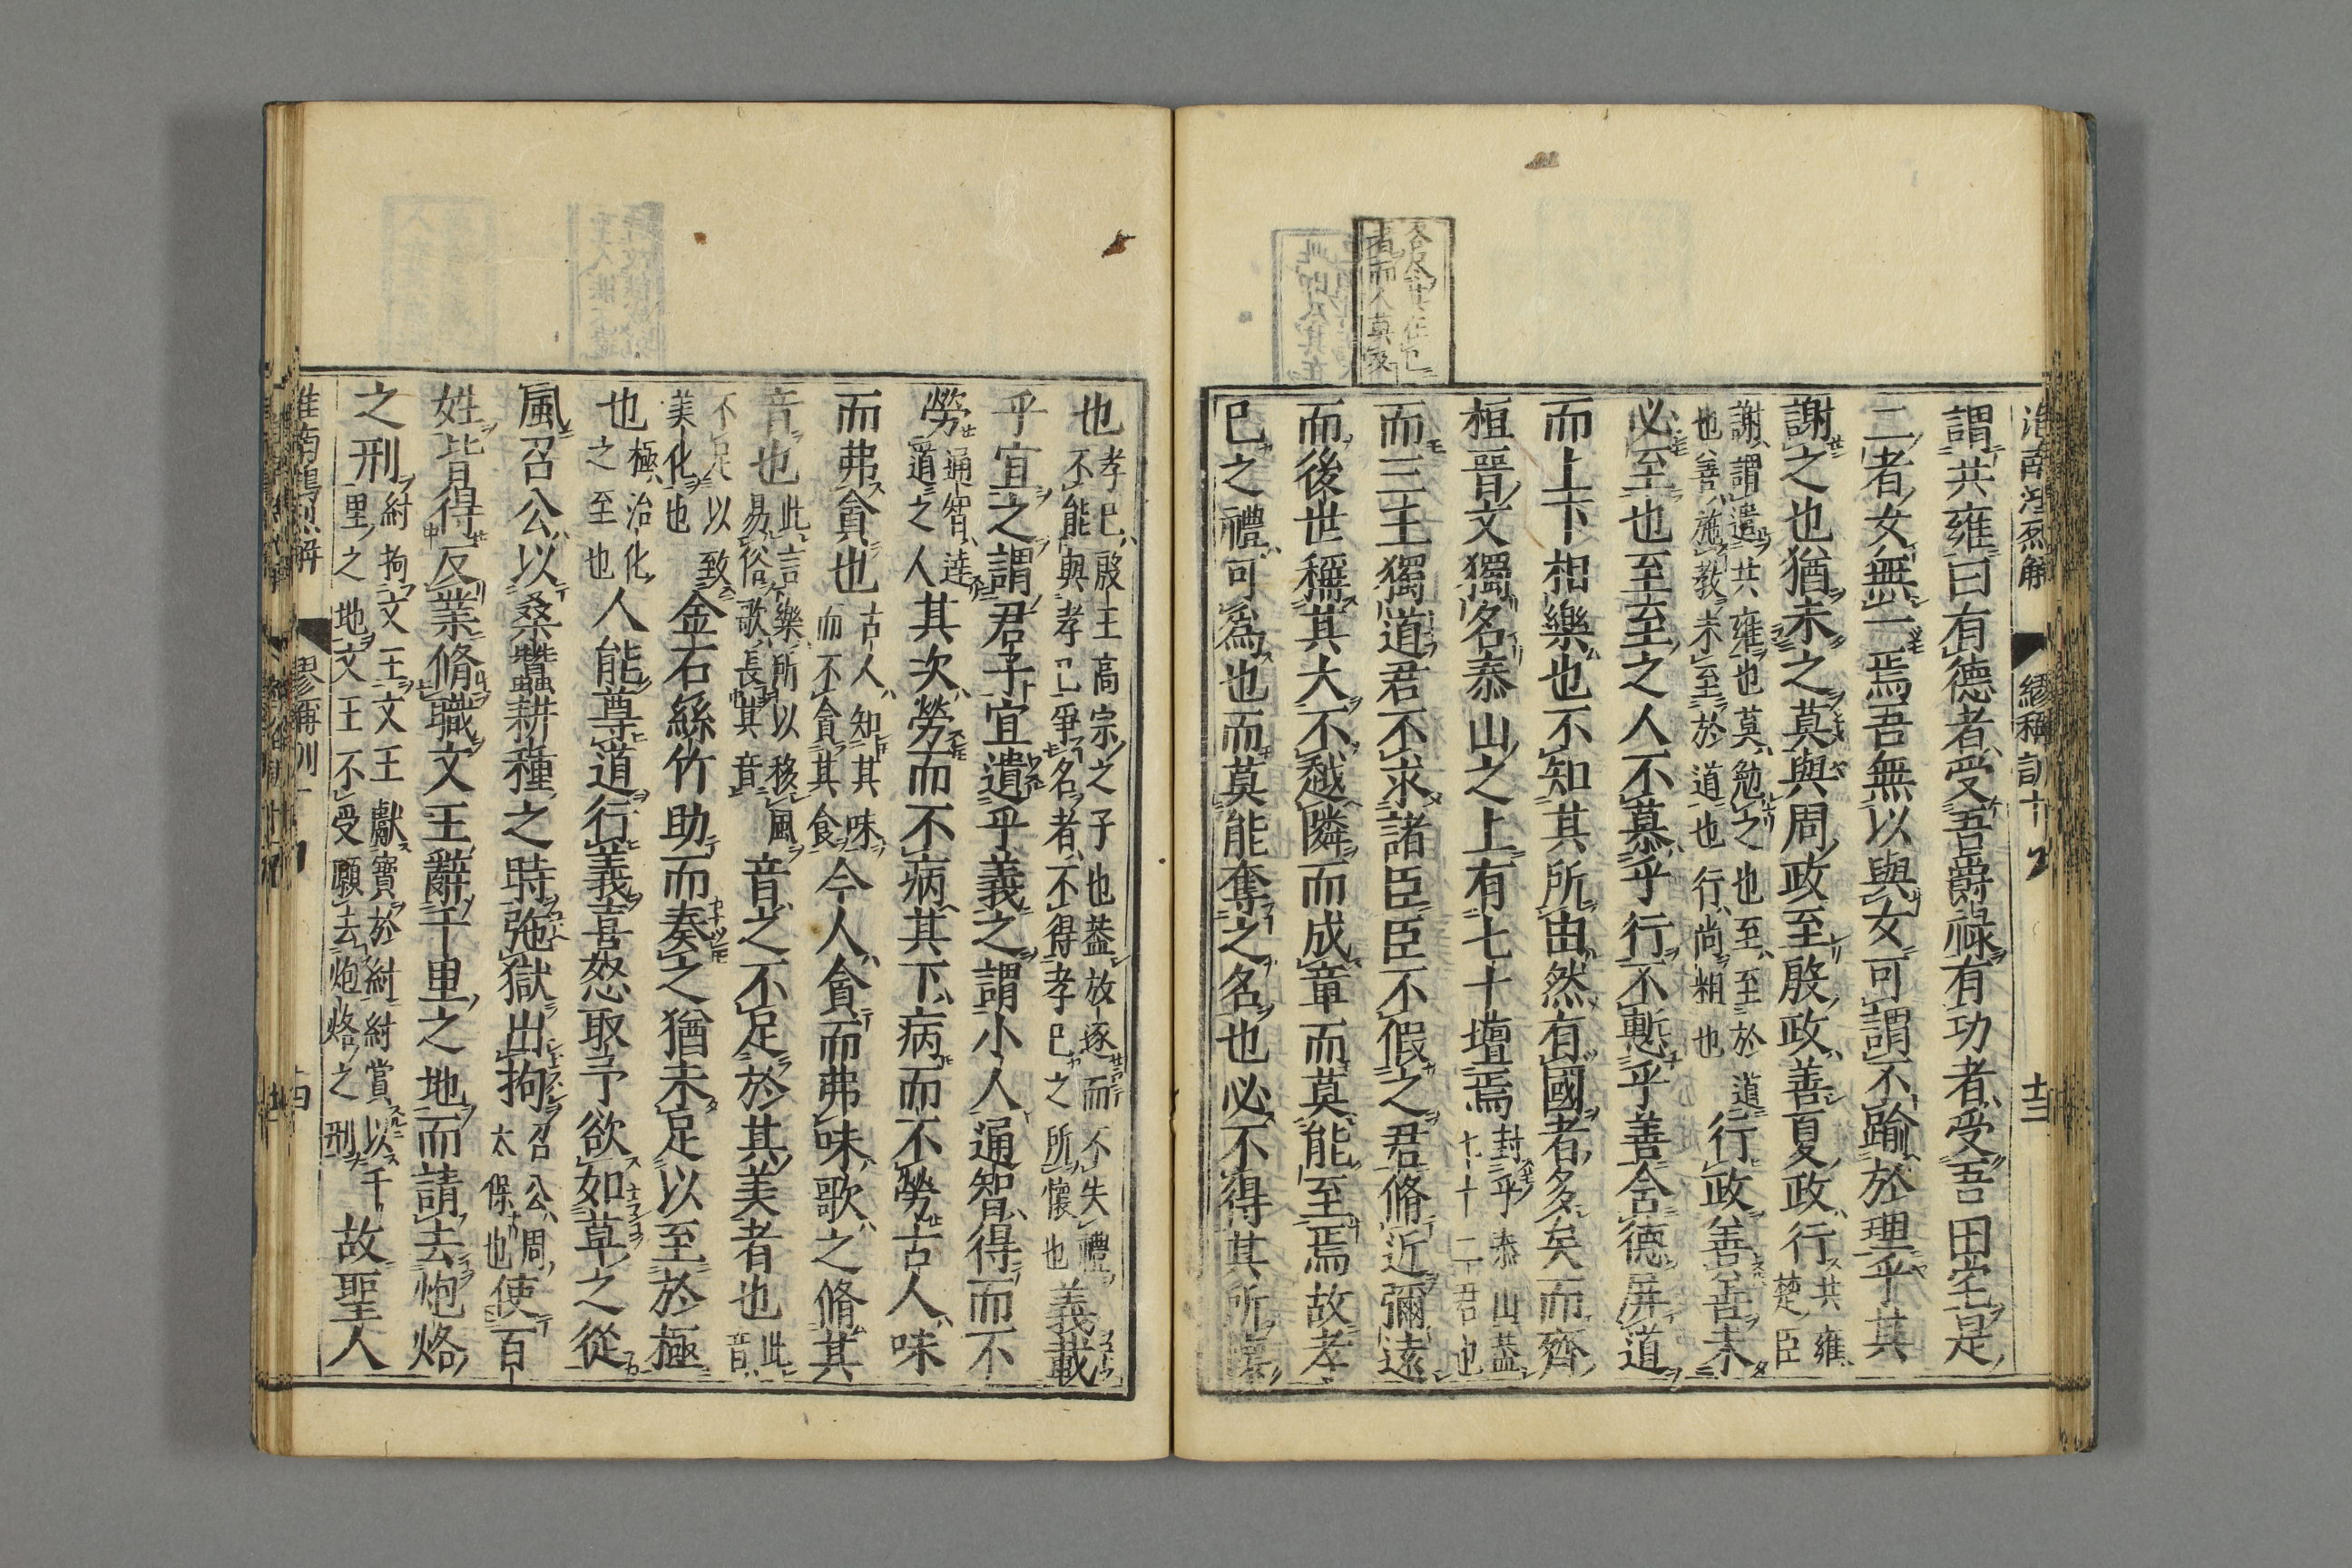 淮南鴻烈解 繆稱訓十 十三
謂共雍曰有德者受吾爵祿有功者受吾田宅是
二者女無一焉吾無以與女可謂不踰於理乎其
謝之也猶未之莫與周政至殷政善夏政行共雍楚臣
謝謂遣共雍也莫勉之也至至於道
也善施教未至於道也行尚粗也
行政善善未
必至也至至之人不慕乎行不慙乎善含德屏道
而上下相樂也不知其所由然有國者多矣而齊
桓晉文獨名泰山之上有七十壇焉封乎泰山蓋七十二君也
而三王獨道君不求諸臣臣不假之君脩近彌遠
而後世稱其大不越隣而成章而莫能至焉故孝
已之禮可爲也而莫能奪之名也必不得其所懷
召公其在已
者而人莫
也孝已殷王高宗之子也葢放逐而不失禮
不能與孝已爭名者不得孝已之所懷也
義載
乎宜之謂君子宜遺乎義之謂小人通智得而不
勞通智達道之人其次勞而不病其下病而不勞古人味
而弗貪也古人知其味而不貪其食今人貪而弗味歌之脩其
音也此言樂所以移風易俗歌長其音音之不足於其美者也此音
不足以致美化也金石絲竹助而奏之猶未足以至於極
也極治化之至也人能尊道行義喜怒取予欲如草之從
風召公以桑蠶耕種之時弛獄出拘召公周太保也使百
姓皆得反業脩職文王辭千里之地而請去炮烙
之刑紂拘文王文王獻寶於紂紂賞以千
里之地文王不受願去炮烙之刑
故聖人
淮南鴻烈解 繆稱訓十 十四